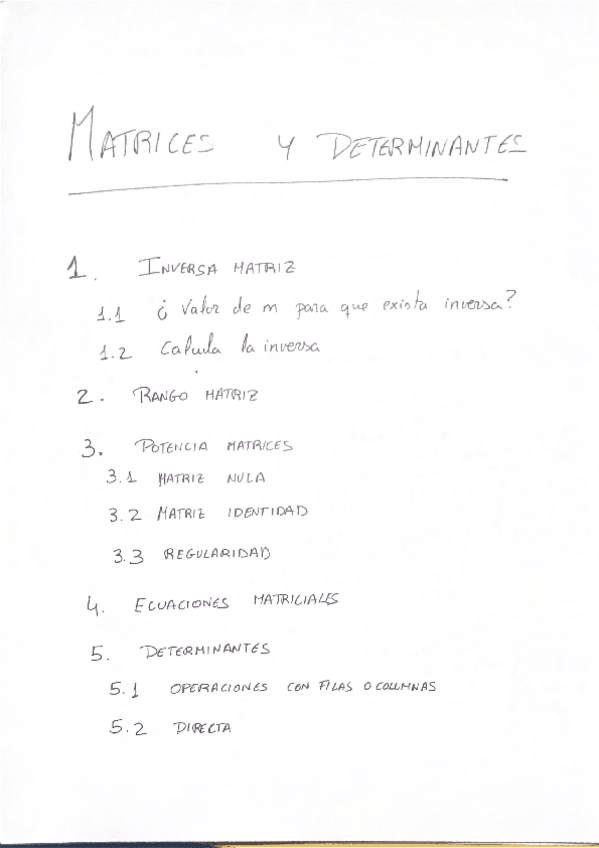 MATRICES Y DETERMINANTES
1. INVERSA MATRIZ
1.1 ¿Valor de m para que exista inversa?
1.2 Calcula la inversa
2. RANGO MATRIZ
3. POTENCIA MATRICES
3.1 MATRIZ NULA
3.2 MATRIZ IDENTIDAD
3.3 REGULARIDAD
4. ECUACIONES MATRICIALES
5. DETERMINANTES
5.1 OPERACIONES CON FILAS O COLUMNAS
5.2 DIRECTA